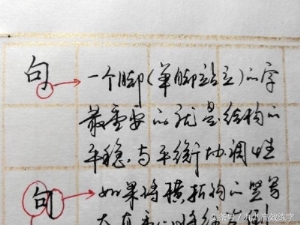 句 一个脚(单脚站立)的字
最重要的就是结构的
平稳与平衡协调性
句 如果将横折钩的竖写